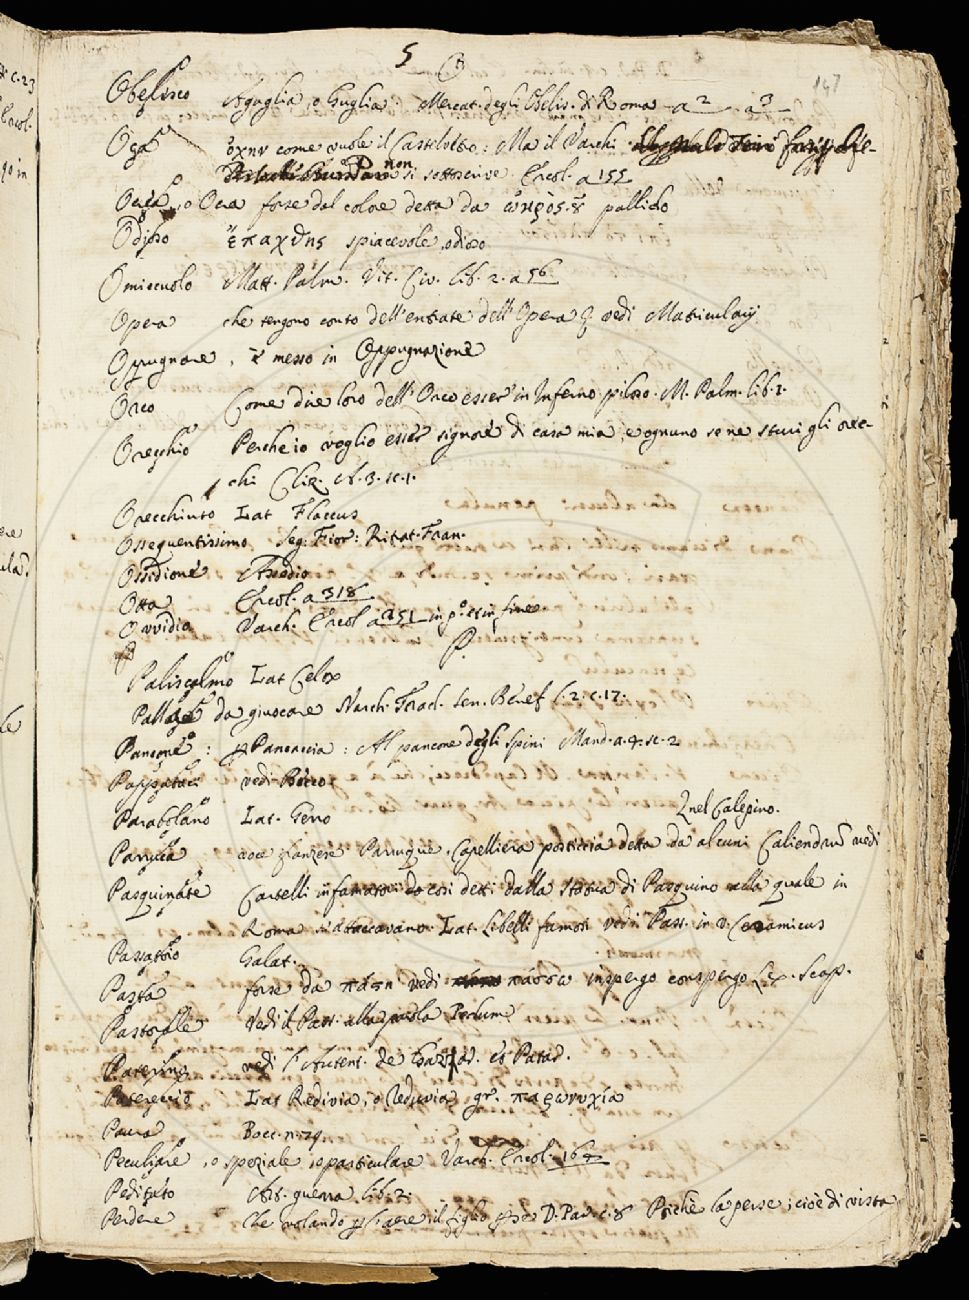 5
147
Obelisco Aguglia, o Guglia: Mercat. degli Obelis. di Roma a 2 a 3
Oga ὄχην come vuole il Castelvetro: Ma il Varchi
non si sottoscrive Ercol. a 155
Ocra, o Ocra forse dal colore detta da ὠχρὸς pallido
Odioso ἐπαχθης spiacevole, odioso
Omicciuolo Matt. Palm. Vit. Civ. lib. 2. a 56
Opera che tengono conto dell'entrate dell'Opera vedi Matricolarij
Oppugnare, è messo in Oppugnazione
Orco Come dire loro dell'Orco esser in Inferno piloso. M. Palm. lib. 1.
Orecchio Perche io voglio esser signore di casa mia, e ognuno se ne sturi gli orec-
chi Cliz. A. 3. sc. 1.
Orecchiuto Lat Flaccus
Ossequentissimo Seg: Fior: Ritrat. Fran.
Ossidione Assedio
Otta Ercol. a 318
Ovvidio Varch. Ercol a 251 in p.o et in fine
P.
Paliscalmo Lat Celox
Palla da giuocare Varch. Tracl. Sen. Benef l. 2. c. 17.
Pancone: Pancaccia: Al pancone degli Spini Mand. a. 4. sc. 2
Pappataci vedi Bocco
Parabolano Lat. Gerro
nel Calepino.
Parucca voce franzese Parruque, Capelliera posticcia detta da alcuni Caliendrum vedi
Pasquinate Cartelli infamatori così detti dalla statua di Pasquino alla quale in
Roma si attaccavano. Lat. Libelli famosi vedi Pass. in v. Ceramicus
Passatoio Galat.
Pasta forse da πάστη vedi πάσσω inspergo conspergo Lex. Scap.
Pastorale Vedi il Pass. alla parola Pedum
Paterino vedi l'Autent. de Gazar. et Patar.
Patereccio Lat Redivia, o Reduvia gr. παρωνυχία
Paura Bocc. n. 79
Peculiare, o speziale, o particulare Varch. Ercol. 167
Peditato Art. guerra lib. 2.
Perdere Che volando il figlio D. Par. c. 8 Poichè la perse; cioè di vista